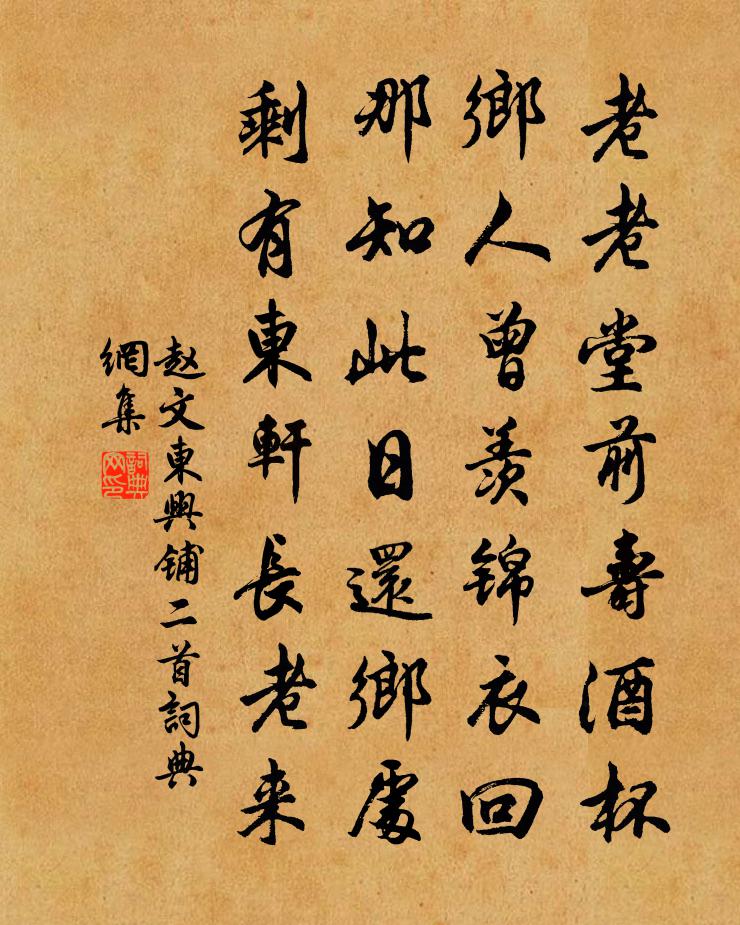 老老堂前壽酒杯
鄉人曾羨錦衣回
那知此日還鄉處
剩有東軒長老来
赵文東興铺二首詞典
網集
詞典
网印